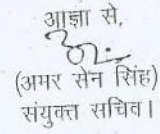 आज्ञा से,
(अमर सेन सिंह)
संयुक्त सचिव।